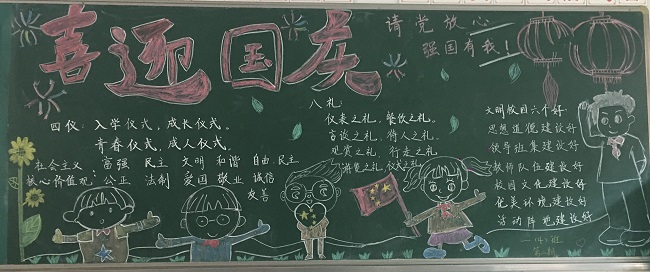 喜迎国庆
请党放心
强国有我！
四仪：入学仪式，成长仪式。
青春仪式，成人仪式。
社会主义 富强 民主 文明 和谐 自由 民主
核心价值观：公正 法制 爱国 敬业 诚信
友善
八礼：
仪表之礼，餐饮之礼。
言谈之礼，待人之礼。
观赏之礼，行走之礼
游览之礼，仪式之礼。
文明校园六个好
思想道德建设好
领导班集建设好
教师队伍建设好
校园文化建设好
优美环境建设好
活动阵地建设好
(4)班